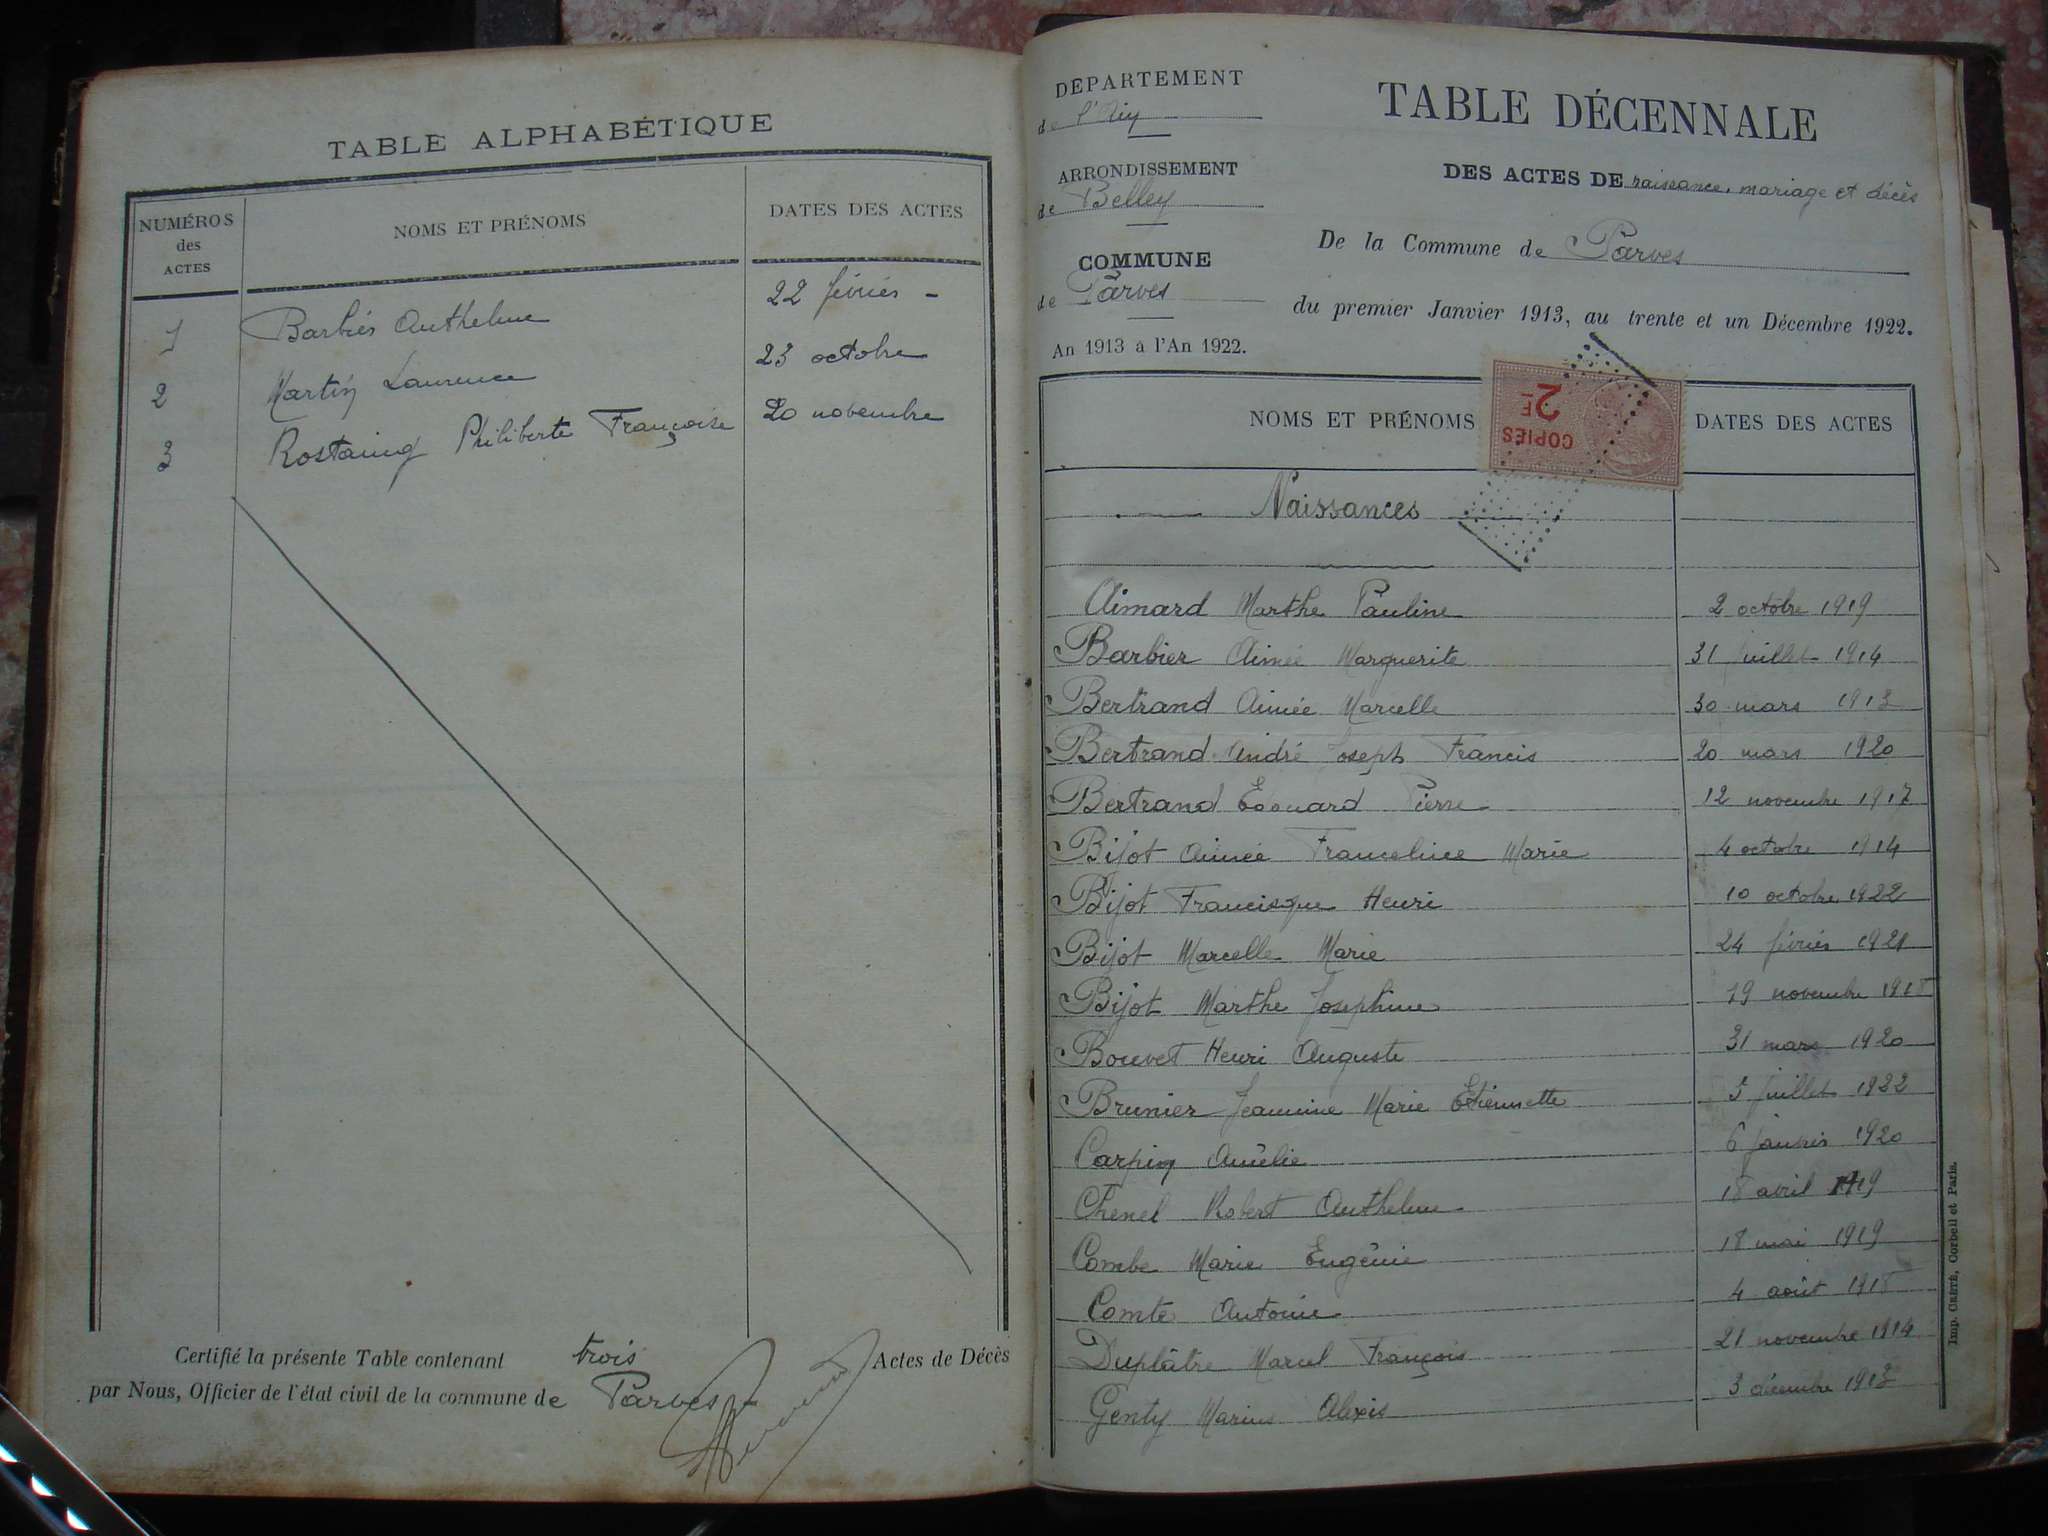 TABLE ALPHABÉTIQUE
NUMÉROS des ACTES
NOMS ET PRÉNOMS
DATES DES ACTES
1 Barbier Anthelme 22 février -
2 Martin Laurence 23 octobre
3 Rostaing Philiberte Françoise 20 novembre
Certifié la présente Table contenant trois Actes de Décès
par Nous, Officier de l'état civil de la commune de Parves
DÉPARTEMENT
de l'Ain
ARRONDISSEMENT
de Belley
COMMUNE
de Parves
An 1913 à l'An 1922.
TABLE DÉCENNALE
DES ACTES DE naissance, mariage et décès
De la Commune de Parves
du premier Janvier 1913, au trente et un Décembre 1922.
NOMS ET PRÉNOMS
COPIES
2F
DATES DES ACTES
Naissances
Aimard Marthe Pauline 2 octobre 1919
Barbier Aimée Marguerite 31 juillet 1914
Bertrand Aimée Marcelle 30 mars 1913
Bertrand André Joseph Francis 20 mars 1920
Bertrand Edouard Pierre 12 novembre 1917
Bijot Aimée Franceline Marie 4 octobre 1914
Bijot Francisque Henri 10 octobre 1922
Bijot Marcelle Marie 24 février 1921
Bijot Marthe Josephine 19 novembre
Bouvet Henri Auguste 31 mars 1920
Brunier Jeannine Marie Etiennette 5 juillet 1922
Carpin Amélie 6 janvier 1920
Chenel Robert Anthelme 18 avril 1919
Combe Marie Eugénie 18 mai 1919
Comte Antonin 4 août
Duplâtre Marcel François 21 novembre 1914
Genty Marius Alexis 3 décembre 1913
Imp. CRÉTÉ, Corbeil et Paris.